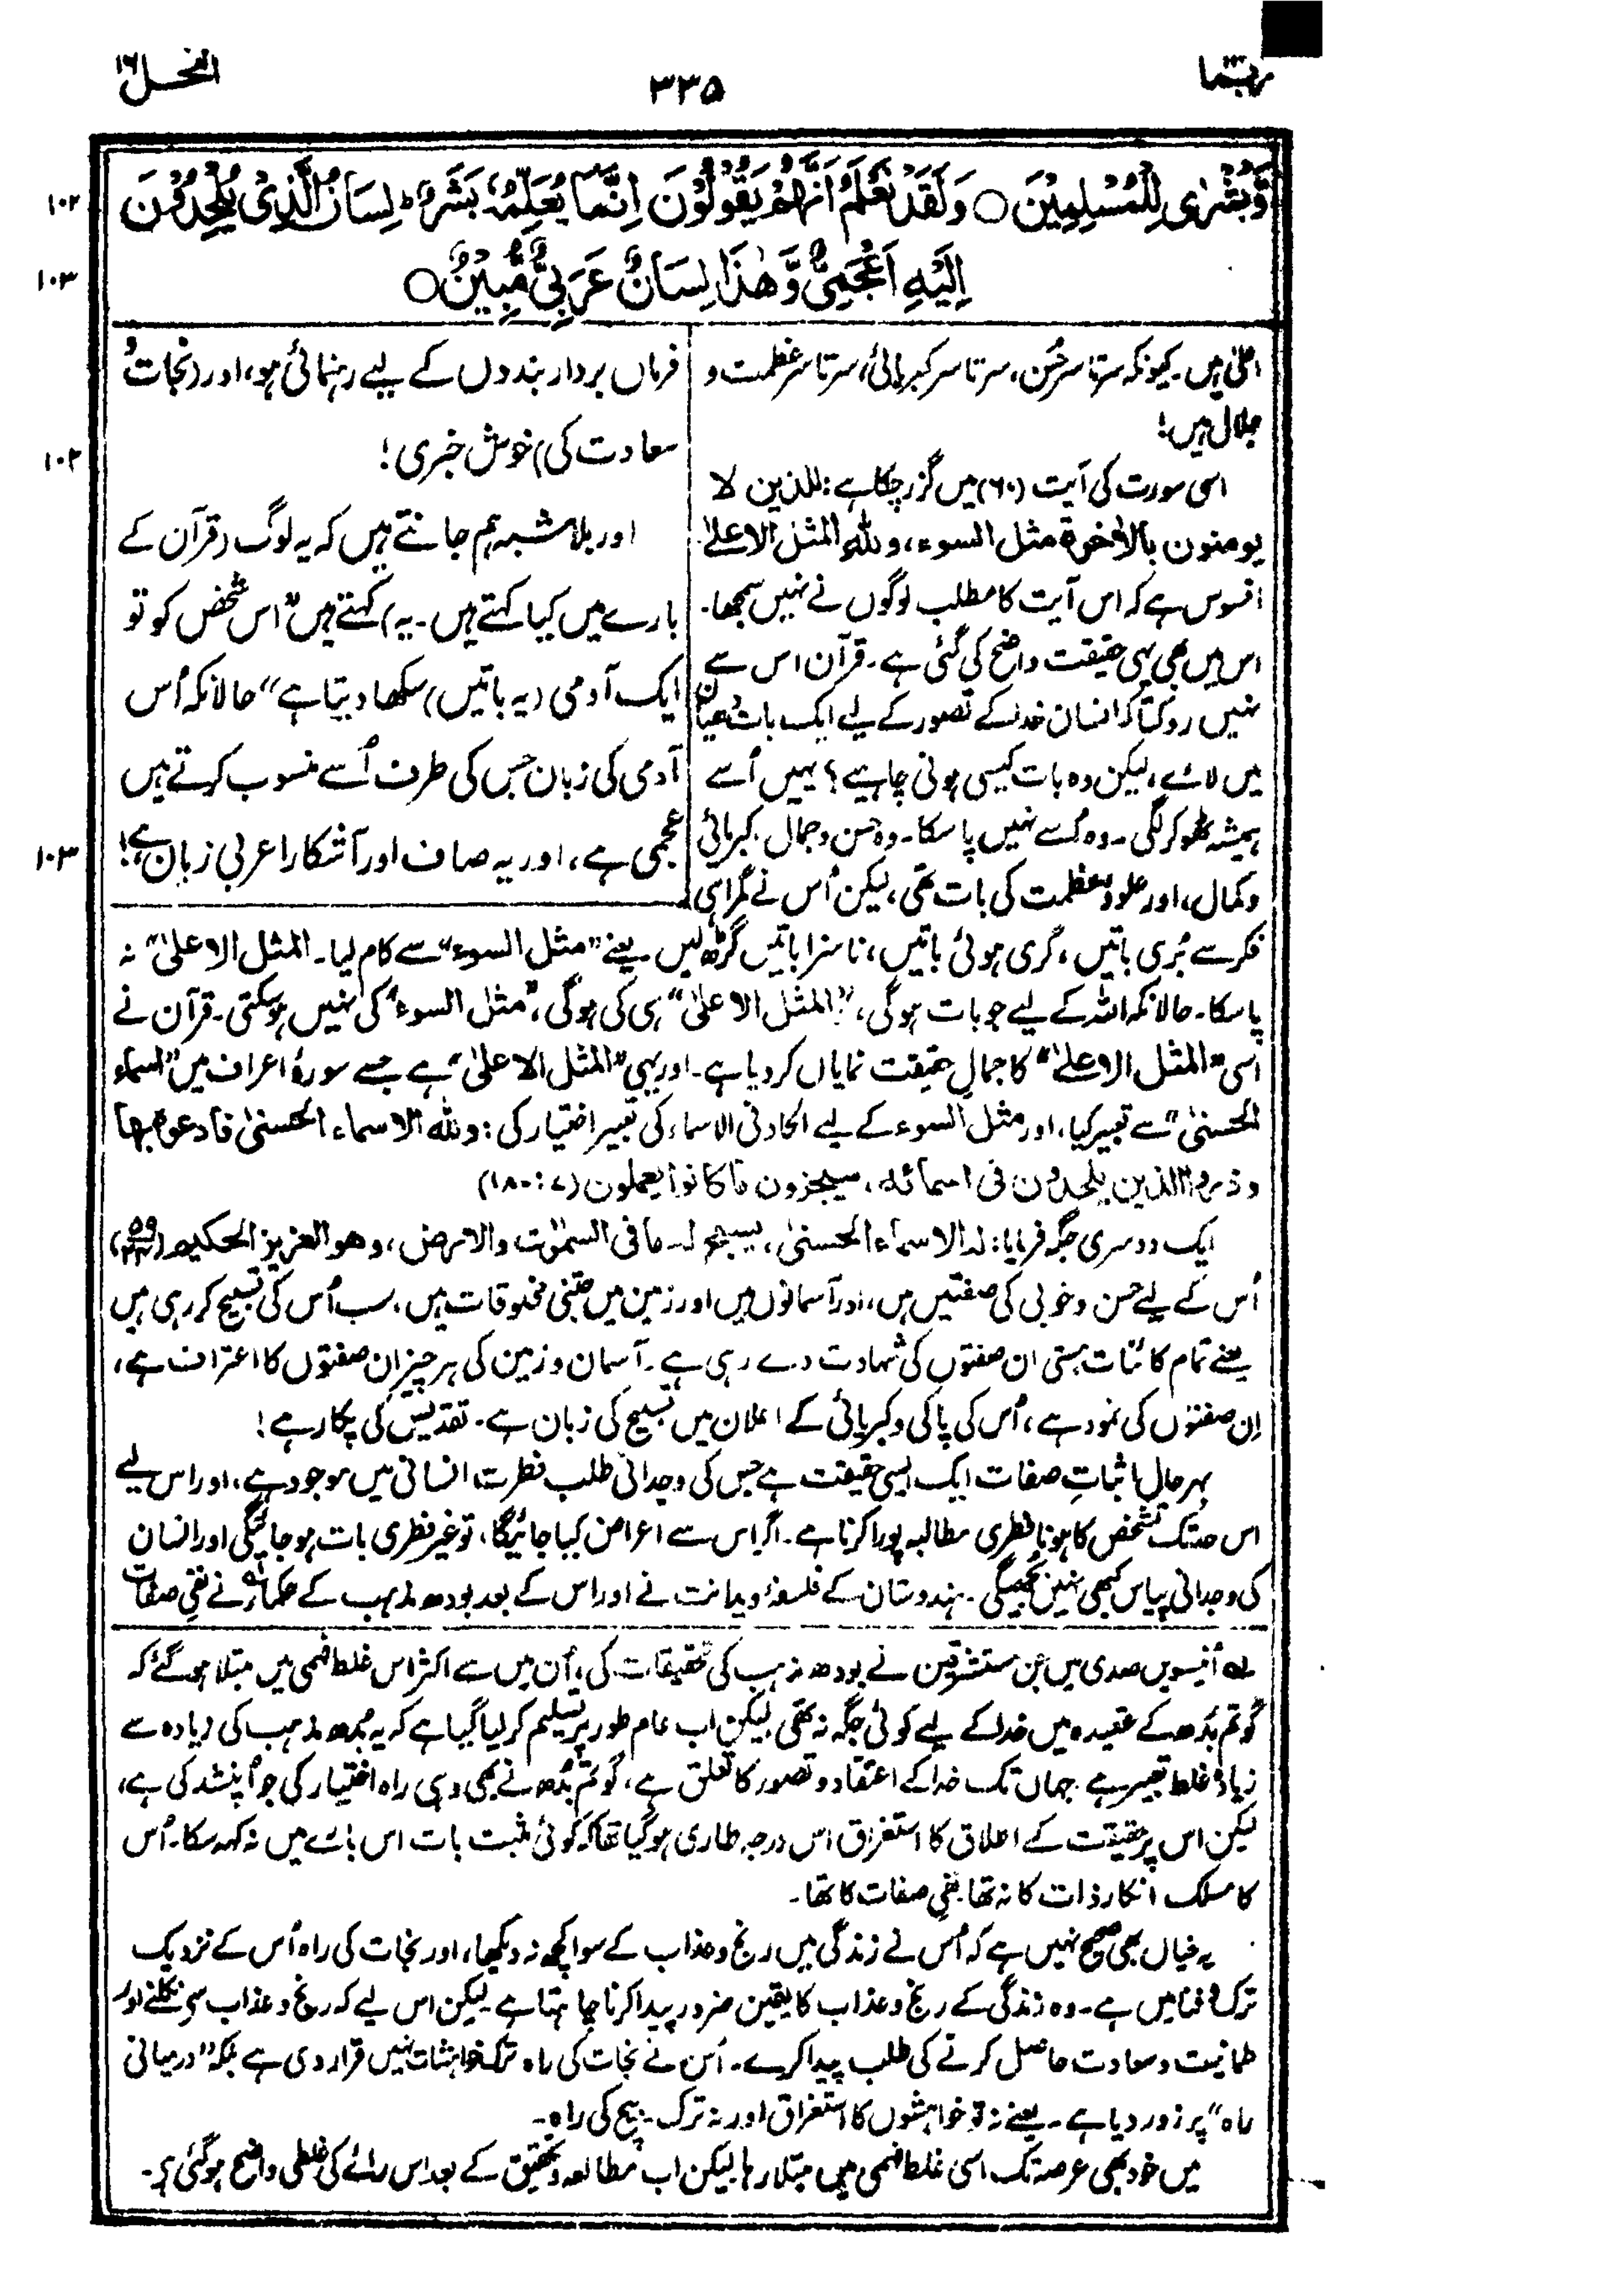 ربما
۳۳۵
النحل ۱۶
وَّبُشْرٰى لِلْمُسْلِمِيْنَ ○ وَلَقَدْ نَعْلَمُ اَنَّهُمْ يَقُوْلُوْنَ اِنَّمَا يُعَلِّمُهٗ بَشَرٌ ؕ لِسَانُ الَّذِيْ يُلْحِدُوْنَ
۱۰۲
اِلَيْهِ اَعْجَمِيٌّ وَّهٰذَا لِسَانٌ عَرَبِيٌّ مُّبِيْنٌ ○
۱۰۳
اعلیٰ ہیں۔ کیونکہ سرتاسر حُسن، سرتاسر کبریائی، سرتاسر عظمت و
جلال ہیں!
اسی سورت کی آیت (۶۰) میں گزر چکا ہے: للذین لا
یومنون بالاٰخرۃ مثل السوء، و للہ المثل الاعلیٰ۔
افسوس ہے کہ اس آیت کا مطلب لوگوں نے نہیں سمجھا۔
اس میں بھی یہی حقیقت واضح کی گئی ہے۔ قرآن اس سے
نہیں روکتا کہ انسان خدا کے تصور کے لیے ایک بات دھیان
میں لائے، لیکن وہ بات کیسی ہونی چاہیے؟ یہیں اُسے
ہمیشہ ٹھوکر لگی۔ وہ اُسے نہیں پا سکا۔ وہ حسن و جمال، کبریائی
و کمال، اور علو و عظمت کی بات تھی، لیکن اُس نے گمراہی
فرماں بردار بندوں کے لیے رہنمائی ہو، اور (نجات و
سعادت کی) خوش خبری!
۱۰۲
اور بلاشبہ ہم جانتے ہیں کہ یہ لوگ (قرآن کے
بارے میں کیا کہتے ہیں۔ یہ) کہتے ہیں "اس شخص کو تو
ایک آدمی (یہ باتیں) سکھا دیتا ہے" حالانکہ اُس
آدمی کی زبان جس کی طرف اُسے منسوب کرتے ہیں
عجمی ہے، اور یہ صاف اور آشکارا عربی زبان ہے!
۱۰۳
فکر سے بُری باتیں، گری ہوئی باتیں، ناسزا باتیں گڑھ لیں۔ یعنے "مثل السوء" سے کام لیا۔ المثل الاعلیٰ" نہ
پا سکا۔ حالانکہ اللہ کے لیے جو بات ہوگی، "المثل الاعلیٰ" ہی کی ہوگی، "مثل السوء" کی نہیں ہو سکتی۔ قرآن نے
اسی "المثل الاعلیٰ" کا جمالِ حقیقت نمایاں کر دیا ہے۔ اور یہی "المثل الاعلیٰ" ہے جسے سورۂ اعراف میں "اسماء
الحسنیٰ" سے تعبیر کیا، اور مثل السوء کے لیے الحاد فی الاسماء کی تعبیر اختیار کی: وللہ الاسماء الحسنیٰ فادعوہ بھا
و ذروا الذین یلحدون فی اسمائہ، سیجزون ما کانوا یعملون (۷: ۱۸۰)
ایک دوسری جگہ فرمایا: لہ الاسماء الحسنیٰ، یسبح لہ ما فی السمٰوٰت والارض، وھو العزیز الحکیم (۵۹ ۲۴)
اُس کے لیے حسن و خوبی کی صفتیں ہیں، اور آسمانوں میں اور زمین میں جتنی مخلوقات ہیں، سب اُس کی تسبیح کر رہی ہیں
یعنے تمام کائنات ہستی ان صفتوں کی شہادت دے رہی ہے۔ آسمان و زمین کی ہر چیز ان صفتوں کا اعتراف ہے،
اِن صفتوں کی نمود ہے، اُس کی پاکی و کبریائی کے اعلان میں تسبیح کی زبان ہے۔ تقدیس کی پکار ہے!
بہر حال اثباتِ صفات ایک ایسی حقیقت ہے جس کی وجدانی طلب فطرت انسانی میں موجود ہے، اور اس لیے
اس حد تک تشخص کا ہونا فطری مطالبہ پورا کرنا ہے۔ اگر اس سے اعراض کیا جائیگا، تو غیر فطری بات ہو جائیگی اور انسان
کی وجدانی پیاس کبھی نہیں بجھیگی۔ ہندوستان کے فلسفۂ ویدانت نے اور اس کے بعد بودھ مذہب کے حکماء لہ نے نفیِ صفات
لہ اُنیسویں صدی میں جن مستشرقین نے بودھ مذہب کی تحقیقات کی، اُن میں سے اکثر اس غلط فہمی میں مبتلا ہو گئے کہ
گوتم بدھ کے عقیدہ میں خدا کے لیے کوئی جگہ نہ تھی لیکن اب عام طور پر تسلیم کر لیا گیا ہے کہ یہ بُدھ مذہب کی زیادہ سے
زیادہ غلط تعبیر ہے جہاں تک خدا کے اعتقاد و تصور کا تعلق ہے، گوتم بُدھ نے بھی وہی راہ اختیار کی جو اُپنشد کی ہے،
لیکن اس پر حقیقت کے اطلاق کا استغراق اس درجہ طاری ہو گیا تھا کہ کوئی مثبت بات اس بارے میں نہ کہہ سکا۔ اُس
کا مسلک انکارِ ذات کا نہ تھا نفیِ صفات کا تھا۔
یہ خیال بھی صحیح نہیں ہے کہ اُس نے زندگی میں رنج و عذاب کے سوا کچھ نہ دیکھا، اور نجات کی راہ اُس کے نزدیک
ترک و فنا میں ہے۔ وہ زندگی کے رنج و عذاب کا یقین ضرور پیدا کرنا چاہتا ہے۔ لیکن اس لیے کہ رنج و عذاب سے نکلنے اور
طمانیت و سعادت حاصل کرنے کی طلب پیدا کرے۔ اُس نے نجات کی راہ ترک خواہشات نہیں قرار دی ہے بلکہ "درمیانی
راہ" پر زور دیا ہے۔ یعنے نہ تو خواہشوں کا استغراق اور نہ ترک۔ بیچ کی راہ۔
میں خود بھی عرصہ تک اسی غلط فہمی میں مبتلا رہا لیکن اب مطالعہ و تحقیق کے بعد اس رائے کی غلطی واضح ہو گئی ہے۔